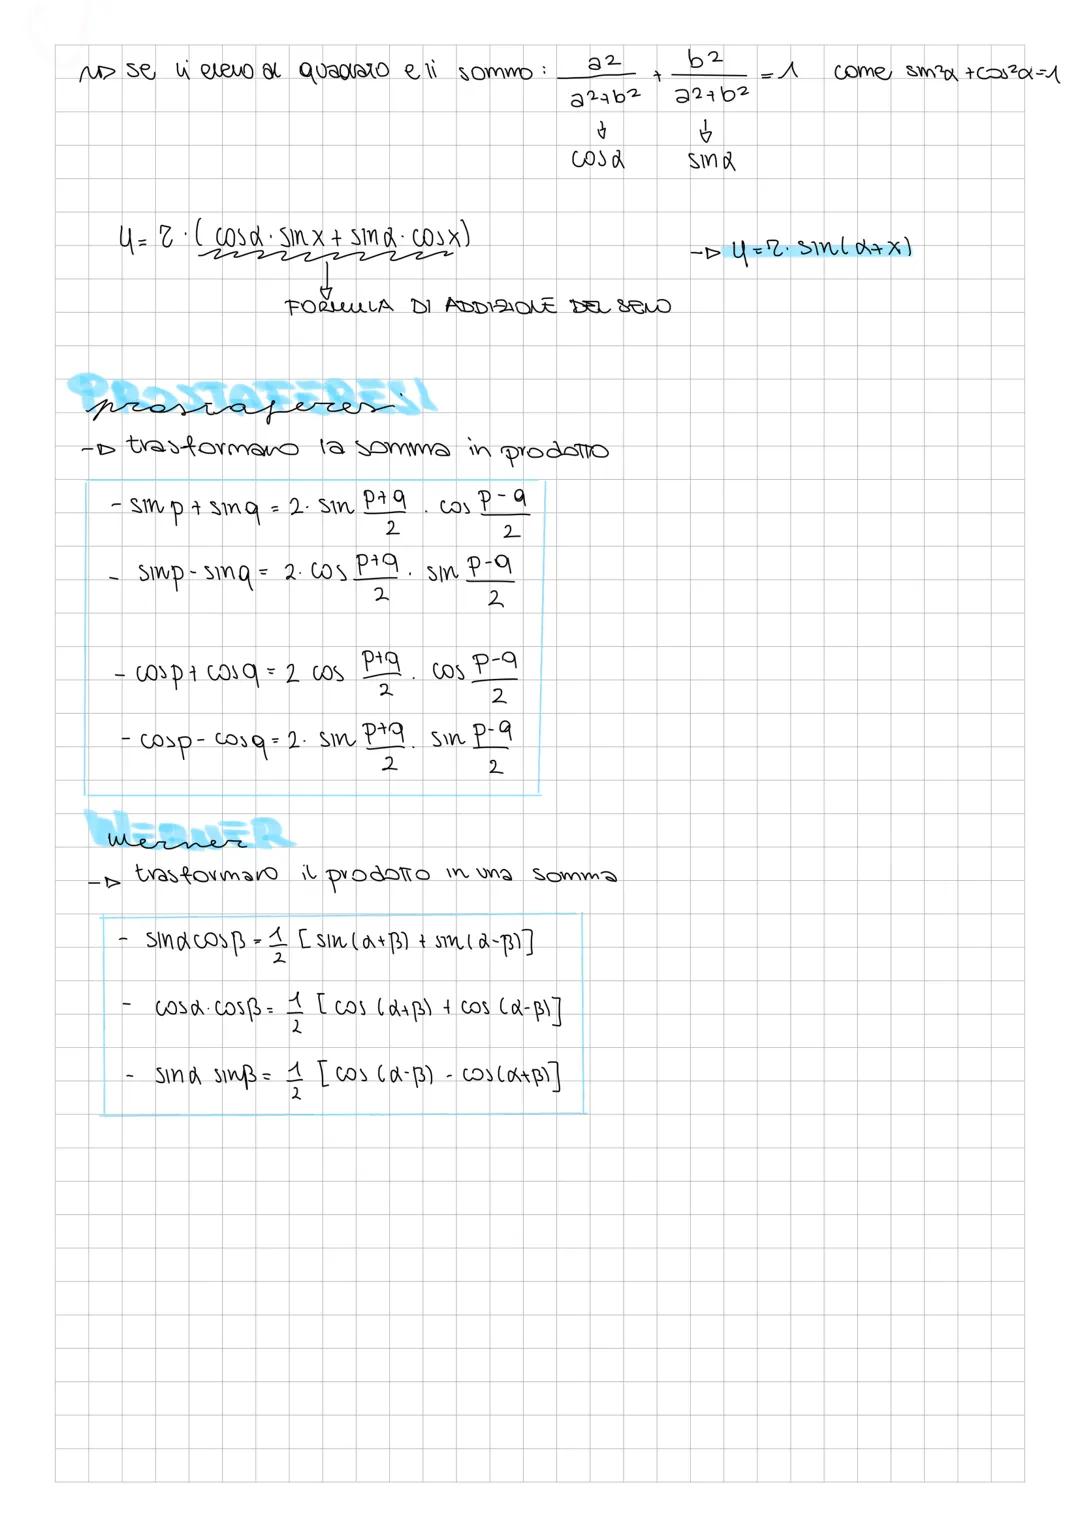 ~> se li elevo al quadrato e li sommo: a²/(a²+b²) + b²/(a²+b²) = 1 come sin²α+cos²α=1
↓ ↓
cosα sinα
y= r·(cosα·sinx+sinα·cosx) -> y=r·sin(α+x)
↓
FORMULA DI ADDIZIONE DEL SENO
PROSTAFERESI
prostaferesi
-> trasformano la somma in prodotto
- sinp+sinq = 2·sin (p+q)/2 · cos (p-q)/2
- sinp-sinq = 2·cos (p+q)/2 · sin (p-q)/2
- cosp+cosq = 2 cos (p+q)/2 · cos (p-q)/2
- cosp-cosq = 2·sin (p+q)/2 · sin (p-q)/2
WERNER
werner
-> trasformano il prodotto in una somma
- sinαcosβ = 1/2 [sin(α+β) + sin(α-β)]
- cosα·cosβ = 1/2 [cos(α+β) + cos(α-β)]
- sinα sinβ = 1/2 [cos(α-β) - cos(α+β)]